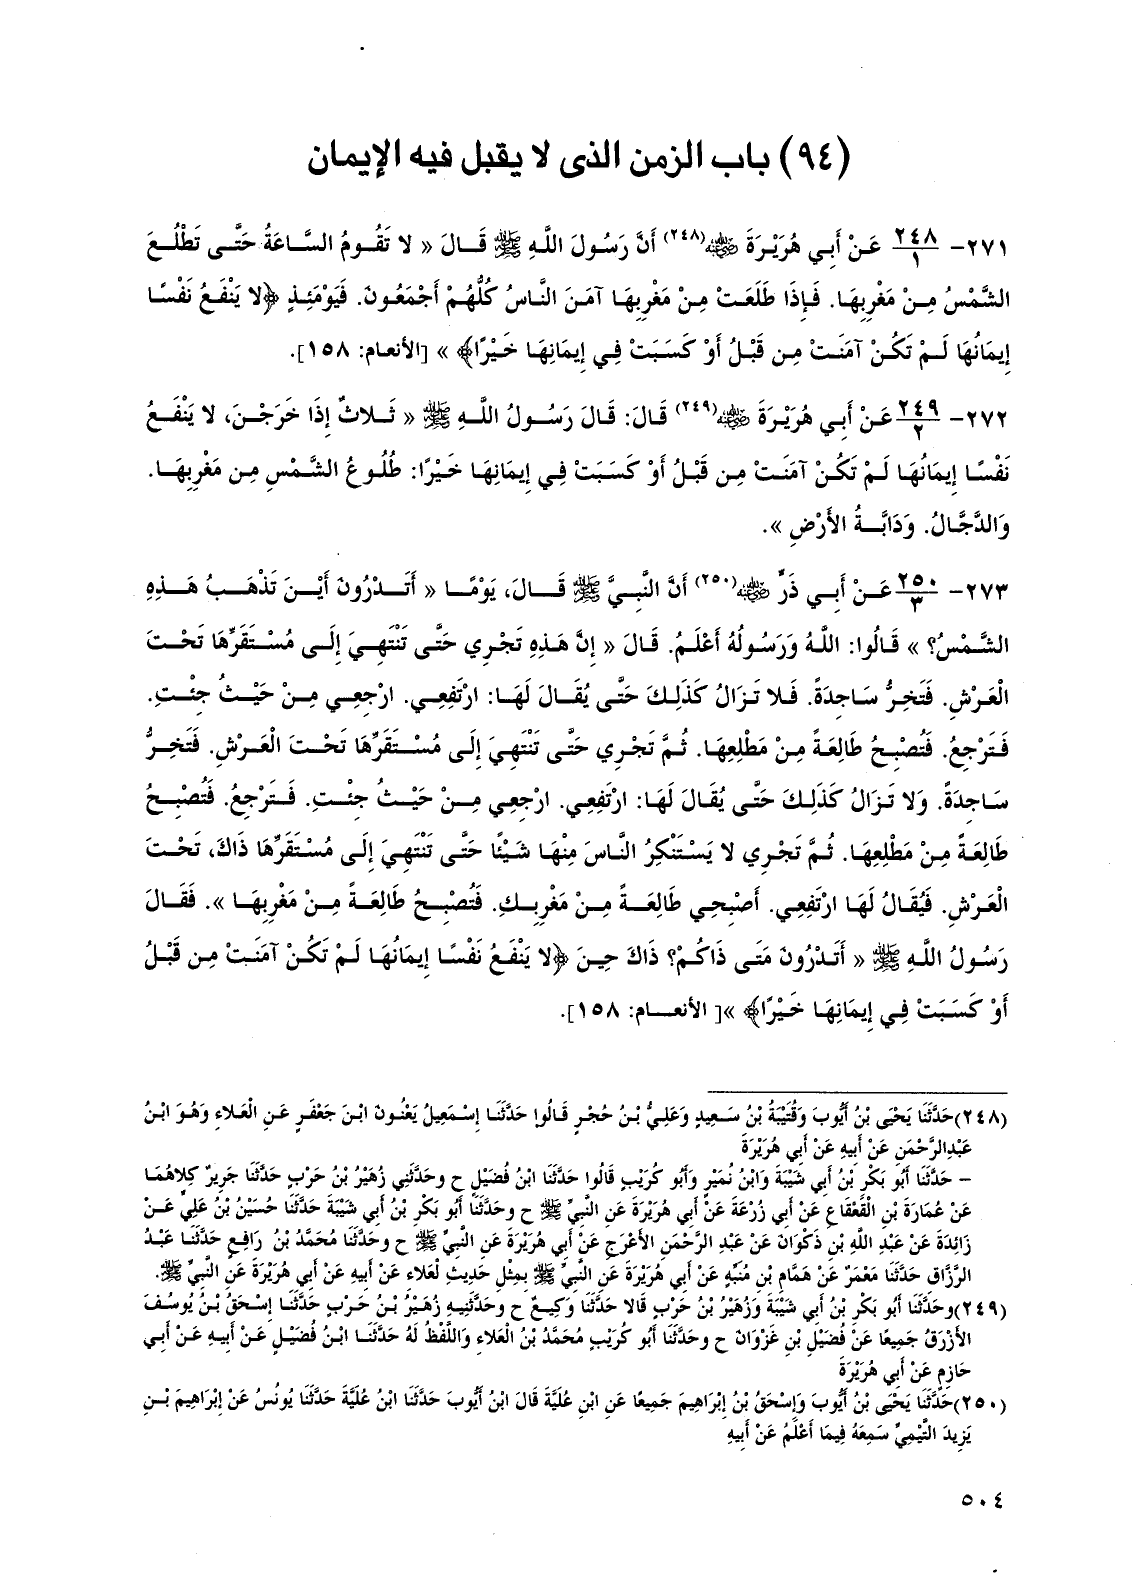 (٩٤) باب الزمن الذى لا يقبل فيه الإيمان
٢٧١- ٢٤٨/١ عَنْ أَبِي هُرَيْرَةَ ﵁(٢٤٨) أَنَّ رَسُولَ اللَّهِ ﷺ قَالَ « لا تَقُومُ السَّاعَةُ حَتَّى تَطْلُعَ
الشَّمْسُ مِنْ مَغْرِبِهَا. فَإِذَا طَلَعَتْ مِنْ مَغْرِبِهَا آمَنَ النَّاسُ كُلُّهُمْ أَجْمَعُونَ. فَيَوْمَئِذٍ ﴿لا يَنْفَعُ نَفْسًا
إِيمَانُهَا لَمْ تَكُنْ آمَنَتْ مِن قَبْلُ أَوْ كَسَبَتْ فِي إِيمَانِهَا خَيْرًا﴾ » [الأنعام: ١٥٨].
٢٧٢- ٢٤٩/٢ عَنْ أَبِي هُرَيْرَةَ ﵁(٢٤٩) قَالَ: قَالَ رَسُولُ اللَّهِ ﷺ « ثَلاثٌ إِذَا خَرَجْنَ، لا يَنْفَعُ
نَفْسًا إِيمَانُهَا لَمْ تَكُنْ آمَنَتْ مِن قَبْلُ أَوْ كَسَبَتْ فِي إِيمَانِهَا خَيْرًا: طُلُوعُ الشَّمْسِ مِن مَغْرِبِهَا.
وَالدَّجَّالُ. وَدَابَّةُ الأَرْضِ ».
٢٧٣- ٢٥٠/٣ عَنْ أَبِي ذَرٍّ ﵁(٢٥٠) أَنَّ النَّبِيَّ ﷺ قَالَ، يَوْمًا « أَتَدْرُونَ أَيْنَ تَذْهَبُ هَذِهِ
الشَّمْسُ؟ » قَالُوا: اللَّهُ وَرَسُولُهُ أَعْلَمُ. قَالَ « إِنَّ هَذِهِ تَجْرِي حَتَّى تَنْتَهِيَ إِلَى مُسْتَقَرِّهَا تَحْتَ
الْعَرْشِ. فَتَخِرُّ سَاجِدَةً. فَلا تَزَالُ كَذَلِكَ حَتَّى يُقَالَ لَهَا: ارْتَفِعِي. ارْجِعِي مِنْ حَيْثُ جِئْتِ.
فَتَرْجِعُ. فَتُصْبِحُ طَالِعَةً مِنْ مَطْلِعِهَا. ثُمَّ تَجْرِي حَتَّى تَنْتَهِيَ إِلَى مُسْتَقَرِّهَا تَحْتَ الْعَرْشِ. فَتَخِرُّ
سَاجِدَةً. وَلا تَزَالُ كَذَلِكَ حَتَّى يُقَالَ لَهَا: ارْتَفِعِي. ارْجِعِي مِنْ حَيْثُ جِئْتِ. فَتَرْجِعُ. فَتُصْبِحُ
طَالِعَةً مِنْ مَطْلِعِهَا. ثُمَّ تَجْرِي لا يَسْتَنْكِرُ النَّاسَ مِنْهَا شَيْئًا حَتَّى تَنْتَهِيَ إِلَى مُسْتَقَرِّهَا ذَاكَ، تَحْتَ
الْعَرْشِ. فَيُقَالُ لَهَا ارْتَفِعِي. أَصْبِحِي طَالِعَةً مِنْ مَغْرِبِكِ. فَتُصْبِحُ طَالِعَةً مِنْ مَغْرِبِهَا ». فَقَالَ
رَسُولُ اللَّهِ ﷺ « أَتَدْرُونَ مَتَى ذَاكُمْ؟ ذَاكَ حِينَ ﴿لا يَنْفَعُ نَفْسًا إِيمَانُهَا لَمْ تَكُنْ آمَنَتْ مِن قَبْلُ
أَوْ كَسَبَتْ فِي إِيمَانِهَا خَيْرًا﴾ »[ الأنعام: ١٥٨].
(٢٤٨)حَدَّثَنَا يَحْيَى بْنُ أَيُّوبَ وَقُتَيْبَةُ بْنُ سَعِيدٍ وَعَلِيُّ بْنُ حُجْرٍ قَالُوا حَدَّثَنَا إِسْمَعِيلُ يَعْنُونَ ابْنَ جَعْفَرٍ عَنِ الْعَلاءِ وَهُوَ ابْنُ
عَبْدِالرَّحْمَنِ عَنْ أَبِيهِ عَنْ أَبِي هُرَيْرَةَ
– حَدَّثَنَا أَبُو بَكْرِ بْنُ أَبِي شَيْبَةَ وَابْنُ نُمَيْرٍ وَأَبُو كُرَيْبٍ قَالُوا حَدَّثَنَا ابْنُ فُضَيْلٍ ح وحَدَّثَنِي زُهَيْرُ بْنُ حَرْبٍ حَدَّثَنَا جَرِيرٌ كِلاهُمَا
عَنْ عُمَارَةَ بْنِ الْقَعْقَاعِ عَنْ أَبِي زُرْعَةَ عَنْ أَبِي هُرَيْرَةَ عَنِ النَّبِيِّ ﷺ ح وحَدَّثَنَا أَبُو بَكْرِ بْنُ أَبِي شَيْبَةَ حَدَّثَنَا حُسَيْنُ بْنُ عَلِيٍّ عَنْ
زَائِدَةَ عَنْ عَبْدِ اللَّهِ بْنِ ذَكْوَانَ عَنْ عَبْدِ الرَّحْمَنِ الأَعْرَجِ عَنْ أَبِي هُرَيْرَةَ عَنِ النَّبِيِّ ﷺ ح وحَدَّثَنَا مُحَمَّدُ بْنُ رَافِعٍ حَدَّثَنَا عَبْدُ
الرَّزَّاقِ حَدَّثَنَا مَعْمَرٌ عَنْ هَمَّامِ بْنِ مُنَبِّهٍ عَنْ أَبِي هُرَيْرَةَ عَنِ النَّبِيِّ ﷺ بِمِثْلِ حَدِيثِ لْعَلاءِ عَنْ أَبِيهِ عَنْ أَبِي هُرَيْرَةَ عَنِ النَّبِيِّ ﷺ.
(٢٤٩)وحَدَّثَنَا أَبُو بَكْرِ بْنُ أَبِي شَيْبَةَ وَزُهَيْرُ بْنُ حَرْبٍ قَالا حَدَّثَنَا وَكِيعٌ ح وحَدَّثَنِيهِ زُهَيْرُ بْنُ حَرْبٍ حَدَّثَنَا إِسْحَقُ بْنُ يُوسُفَ
الأَزْرَقُ جَمِيعًا عَنْ فُضَيْلِ بْنِ غَزْوَانَ ح وحَدَّثَنَا أَبُو كُرَيْبٍ مُحَمَّدُ بْنُ الْعَلاءِ وَاللَّفْظُ لَهُ حَدَّثَنَا ابْنُ فُضَيْلٍ عَنْ أَبِيهِ عَنْ أَبِي
حَازِمٍ عَنْ أَبِي هُرَيْرَةَ
(٢٥٠)حَدَّثَنَا يَحْيَى بْنُ أَيُّوبَ وَإِسْحَقُ بْنُ إِبْرَاهِيمَ جَمِيعًا عَنِ ابْنِ عُلَيَّةَ قَالَ ابْنُ أَيُّوبَ حَدَّثَنَا ابْنُ عُلَيَّةَ حَدَّثَنَا يُونُسُ عَنْ إِبْرَاهِيمَ بْنِ
يَزِيدَ التَّيْمِيِّ سَمِعَهُ فِيمَا أَعْلَمُ عَنْ أَبِيهِ
٥٠٤